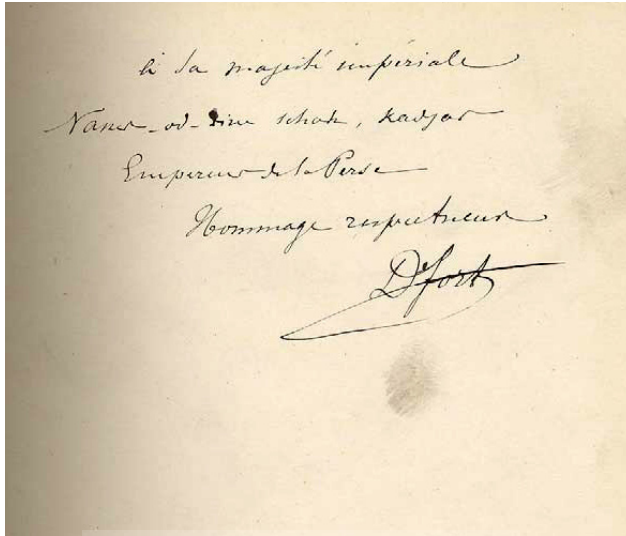 à Sa majesté impériale
Nasser-od-Dine schah, Kadjar
Empereur de la Perse
Hommage respectueux
Dr Fort